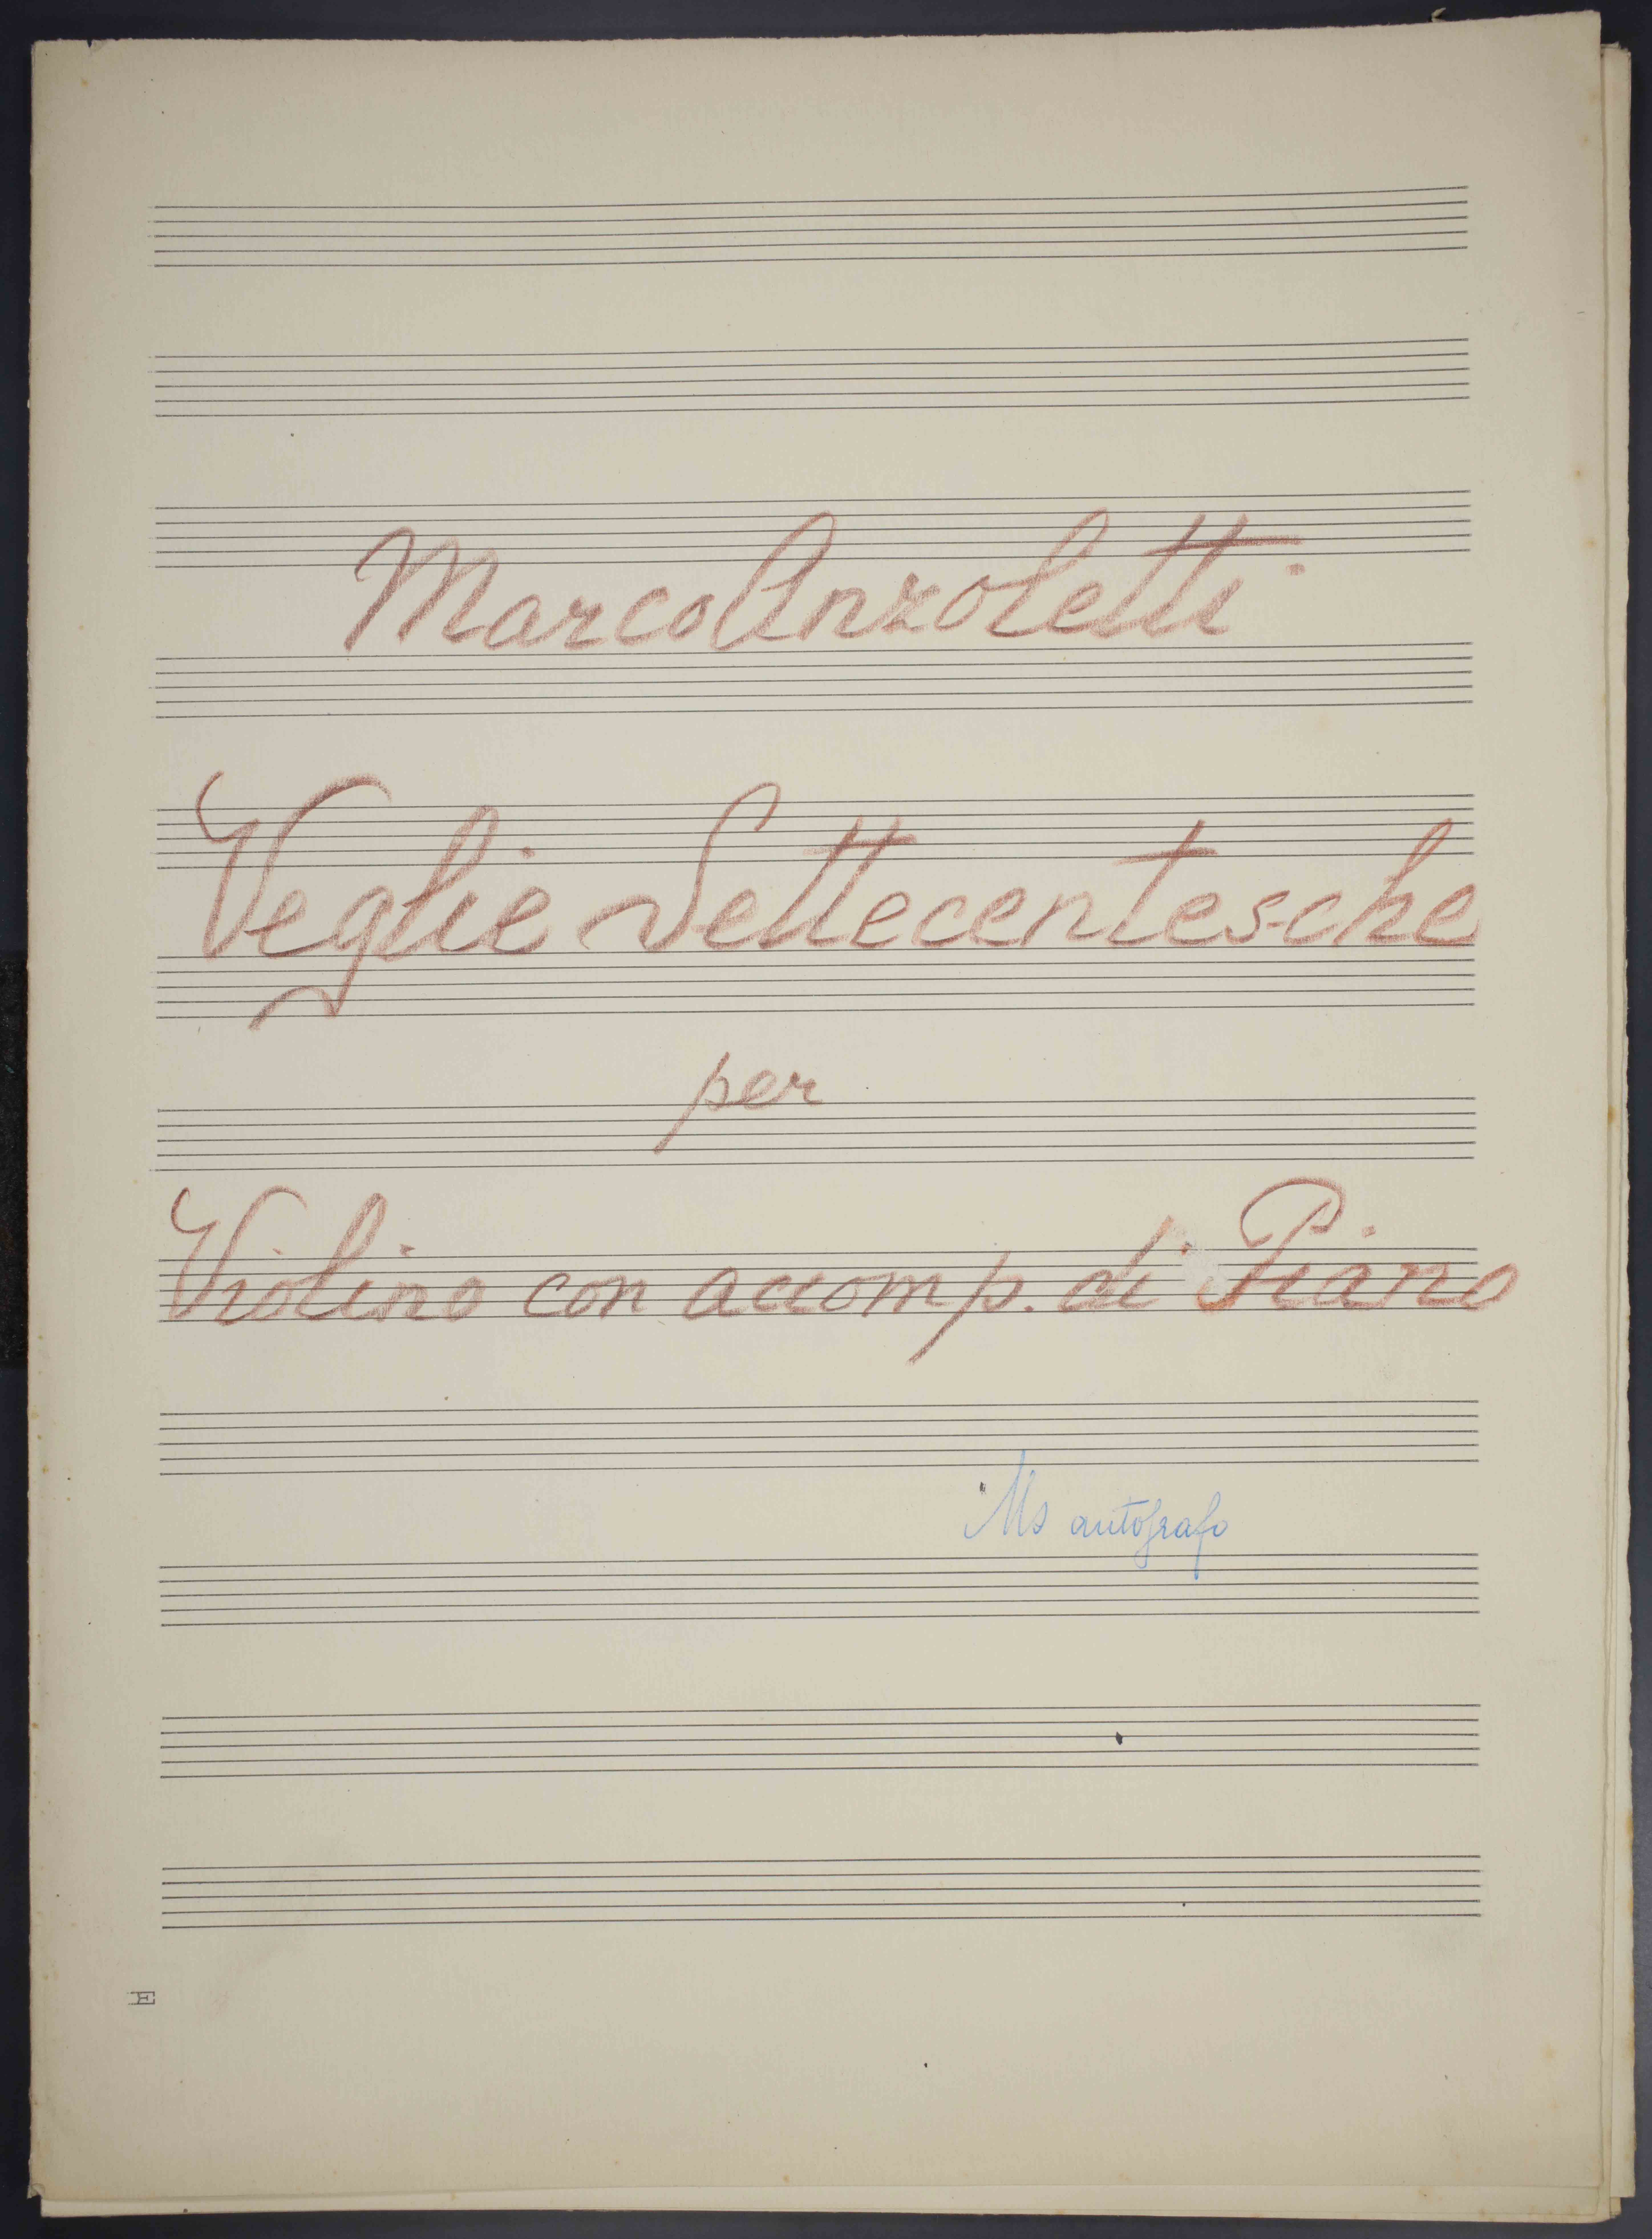 Marco Anzoletti
Veglie Settecentesche
per
Violino con accomp. di Piano
Ms autografo
E